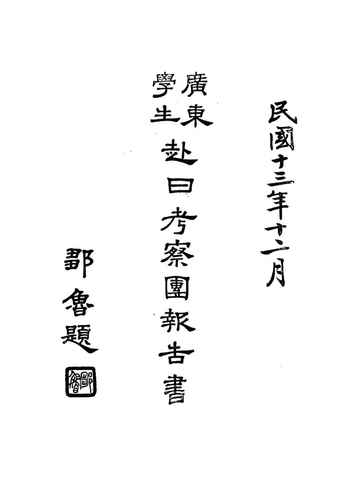 民國十三年十二月
廣東學生赴日考察團報告書
鄒魯題